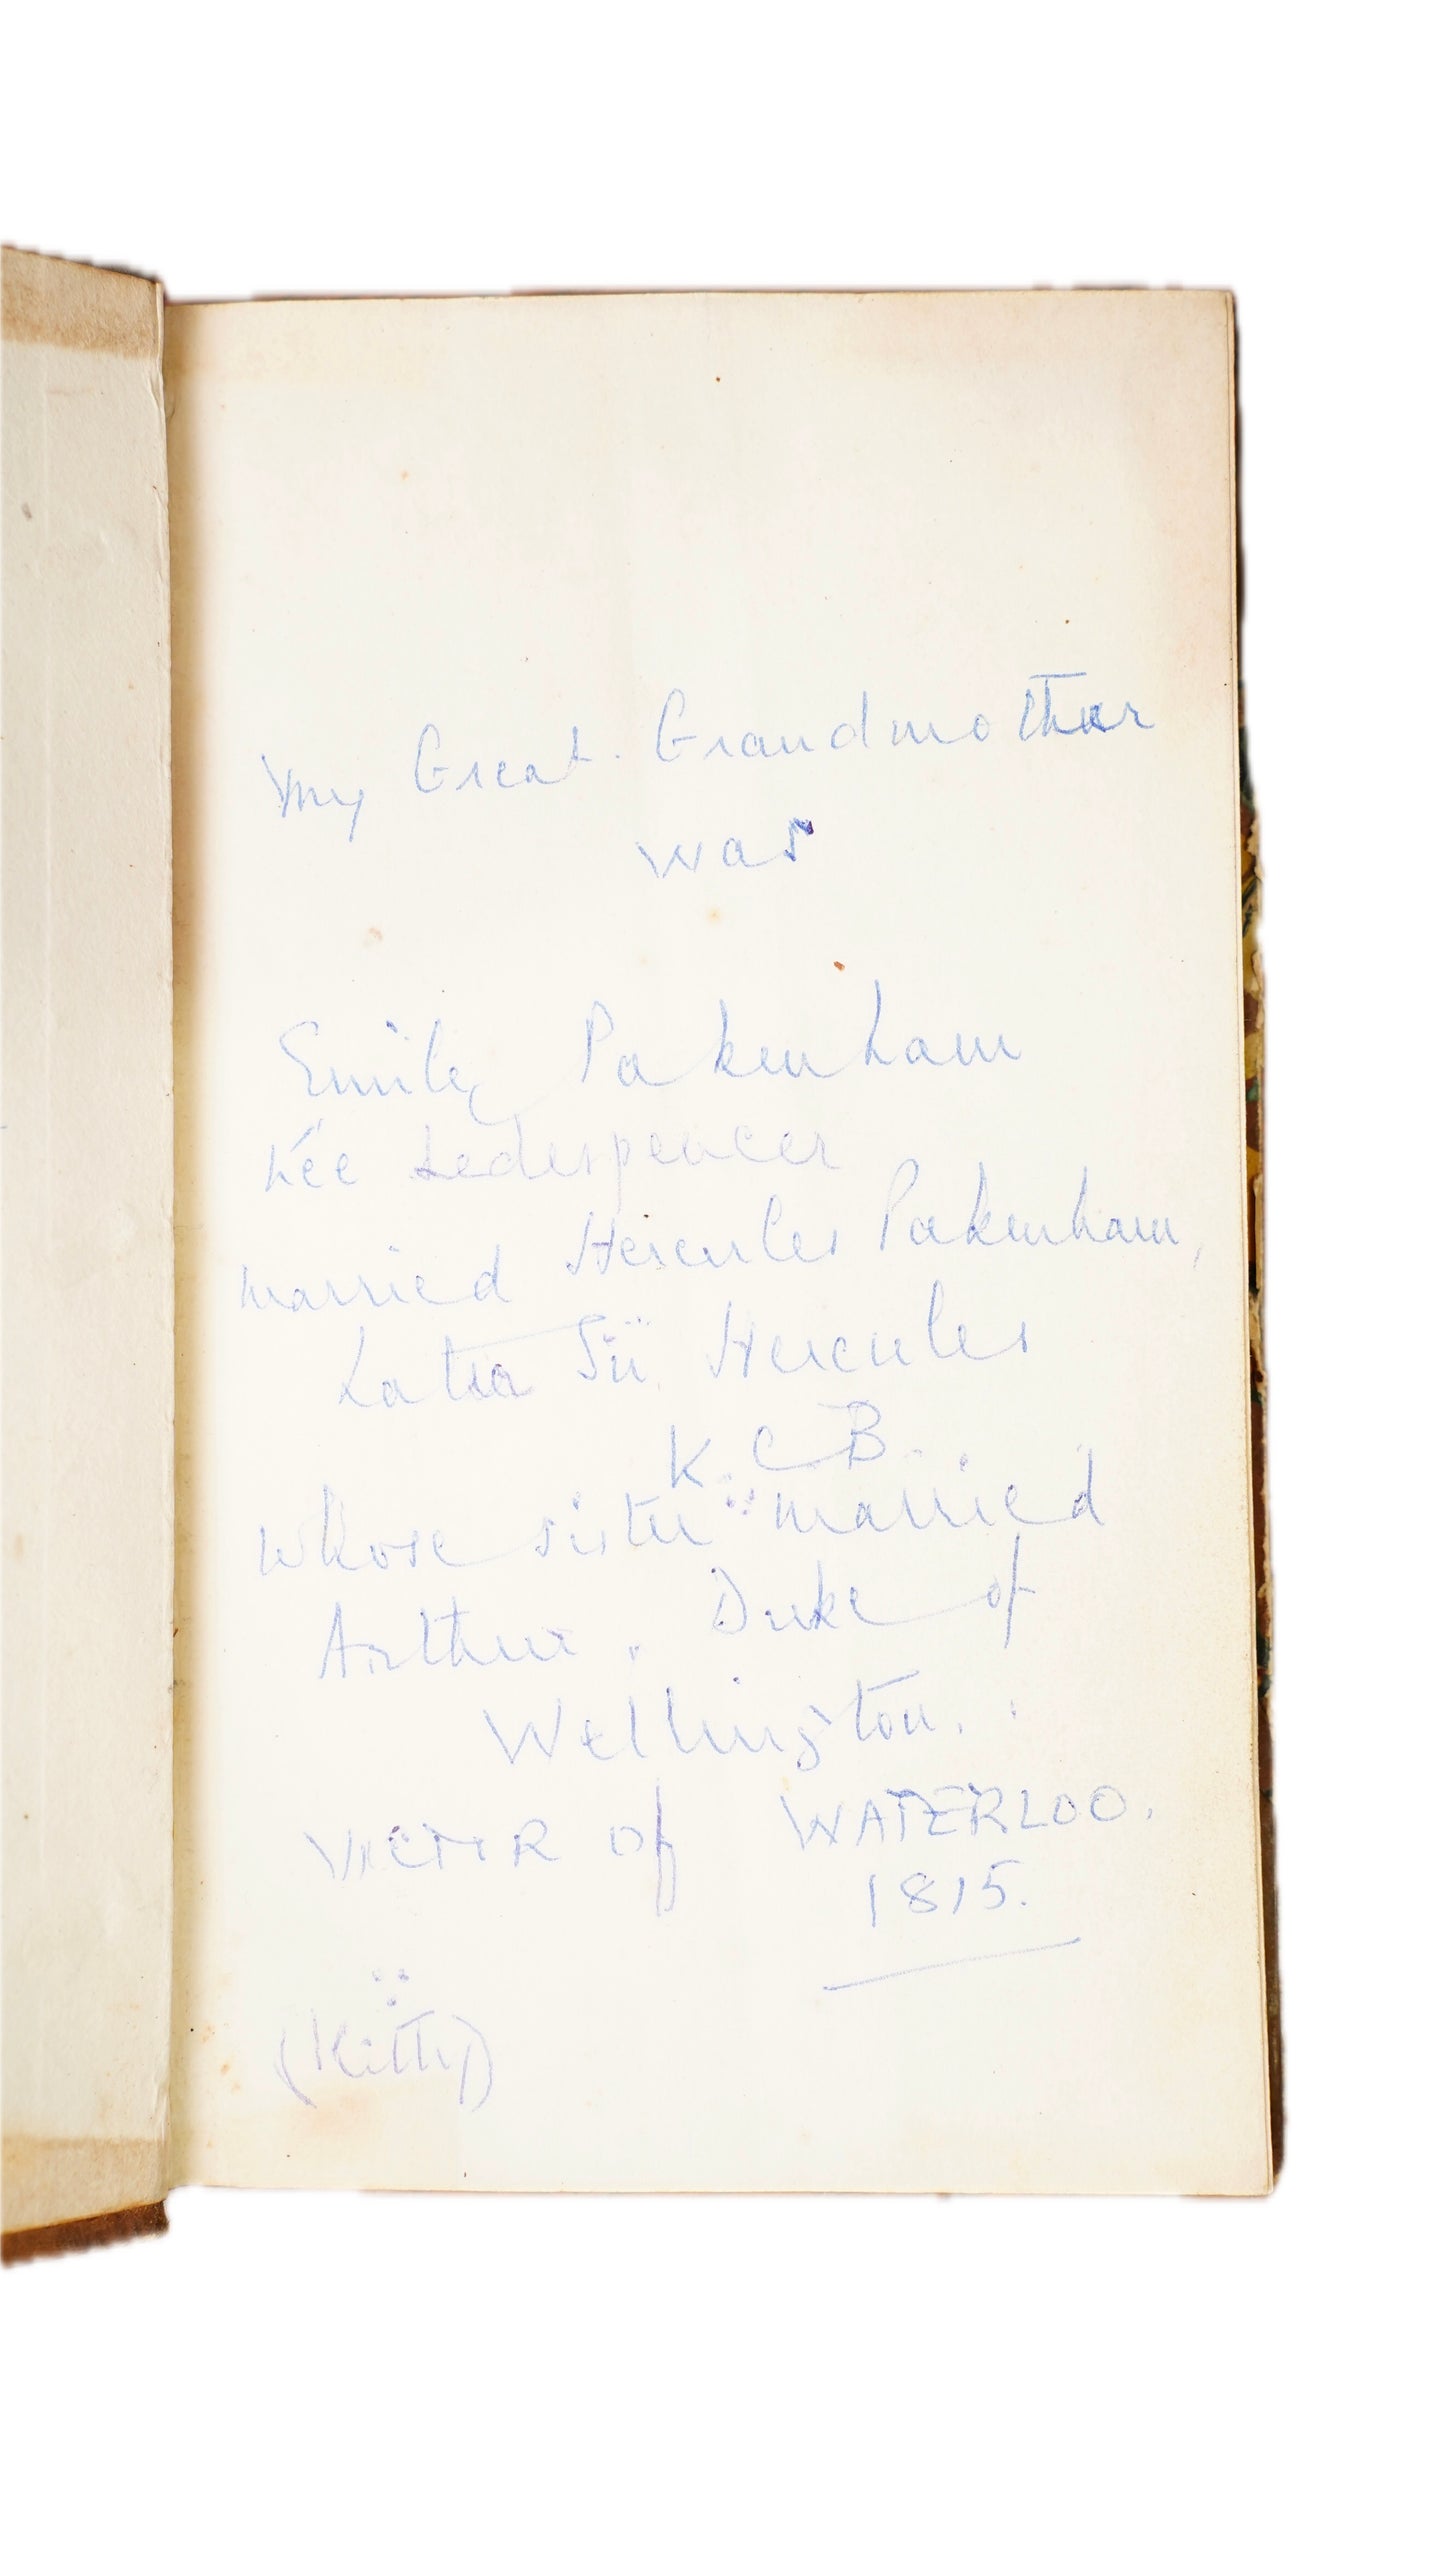 My Great. Grandmother
was
Emily Pakenham
née Ledespencer
married Hercules Pakenham,
Later Sir Hercules
K.C.B.
whose sister married
Arthur, Duke of
Wellington.
VICTOR of WATERLOO.
1815.
(Kitty)